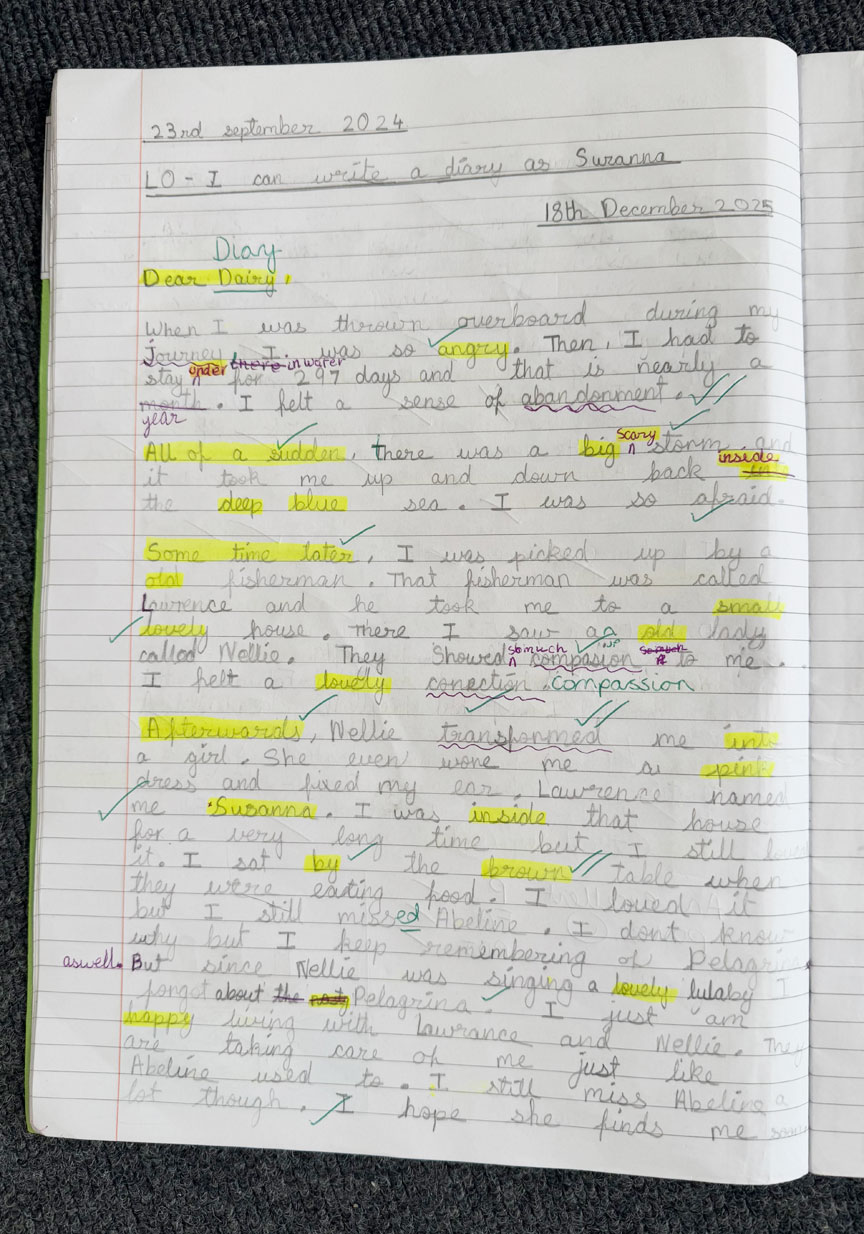 23rd september 2024
LO - I can write a diary as Suzanna
18th December 2025
Diary
Dear Dairy,
When I was thrown overboard during my
journey, I was so angry. Then, I had to
under there in water
stay for 297 days and that is nearly a
month. I felt a sense of abandonment.
year
scary
All of a sudden, there was a big storm and
inside
it took me up and down back in
the deep blue sea. I was so afraid.
Some time later, I was picked up by a
old fisherman. That fisherman was called
Lawrence and he took me to a small
lovely house. There I saw an old lady
so much so much
called Nellie. They showed compasion to me.
I felt a lovely conection. compassion
Afterwards, Nellie transformed me into
a girl. She even wore me a pink
dress and fixed my ear. Lawrence named
me Susanna. I was inside that house
for a very long time but I still loved
it. I sat by the brown table when
they were eating food. I loved it
but I still missed Abeline. I dont know
why but I keep remembering of Pelagrina
aswell. But since Nellie was singing a lovely lulaby I
forgot about the Pelagrina. I just am
happy living with Lawrance and Nellie. They
are taking care of me just like
Abeline used to. I still miss Abeline a
lot though. I hope she finds me soon